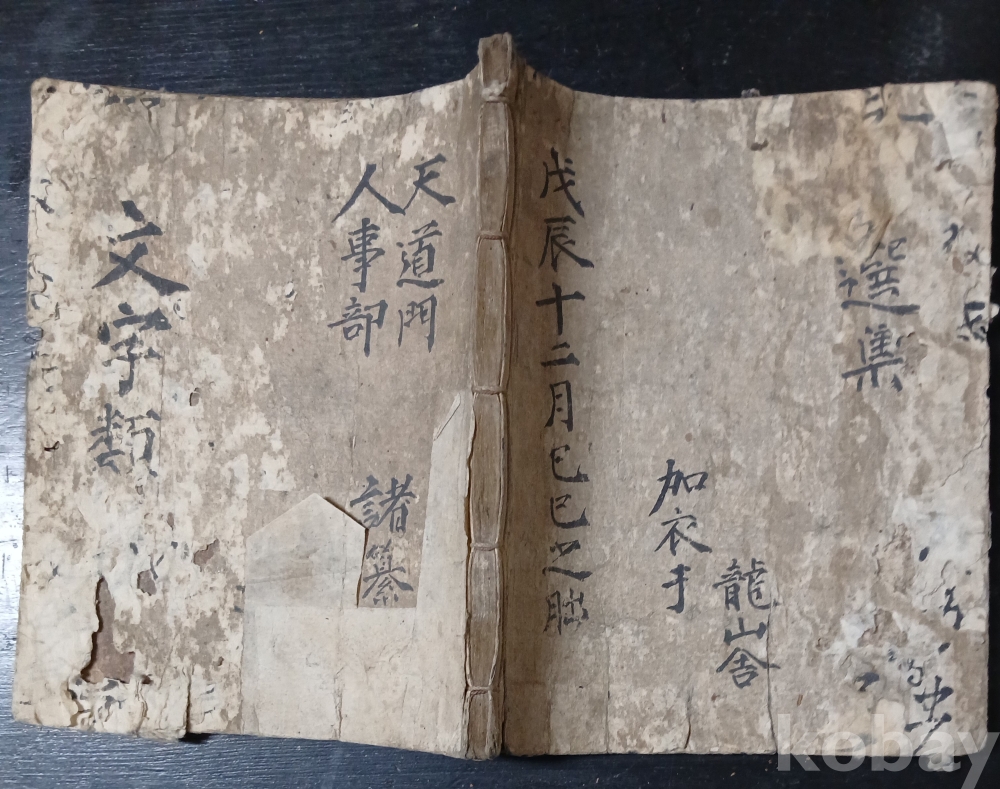 選集
龍山舍
加衣手
戊辰十二月巳巳之臘
天道門
人事部
諸纂
文字類
kobay